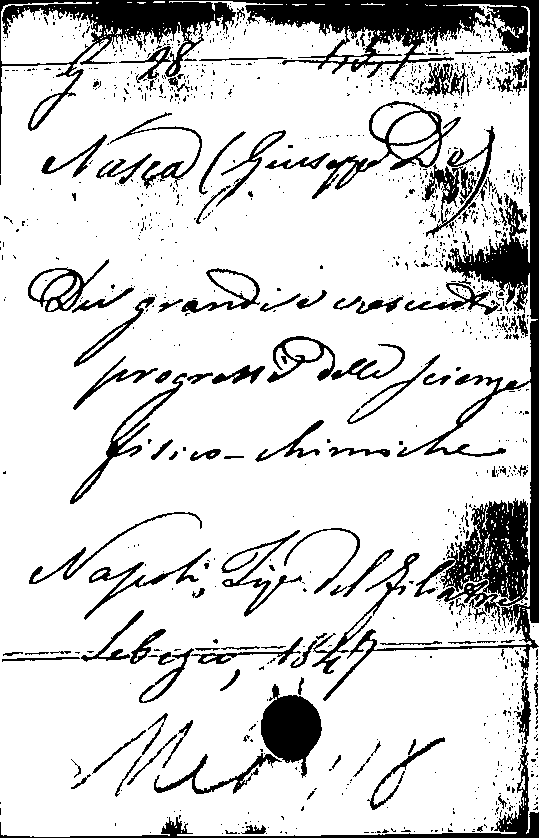 G 28
Nasca (Giuseppe De)
Dei grandi e crescenti
progressi delle scienze
fisico-chimiche
Napoli, Tip. del Filiatre
Sebezio, 1847